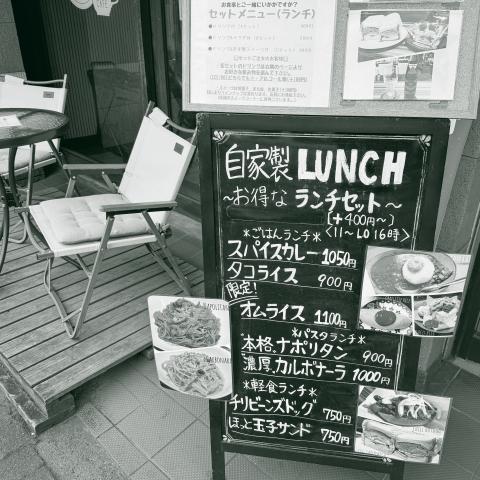 お食事とご一緒にいかがですか?
セットメニュー(ランチ)
自家製 LUNCH
〜お得な ランチセット〜
[+400円〜]
〈11〜LO 16時〉
*ごはんランチ*
スパイスカレー 1050円
タコライス 900円
限定!
オムライス 1100円
*パスタランチ*
本格、ナポリタン 900円
濃厚、カルボナーラ 1000円
*軽食ランチ*
チリビーンズドッグ 750円
ほっと玉子サンド 750円
NAPOLITAN
CARBONARA